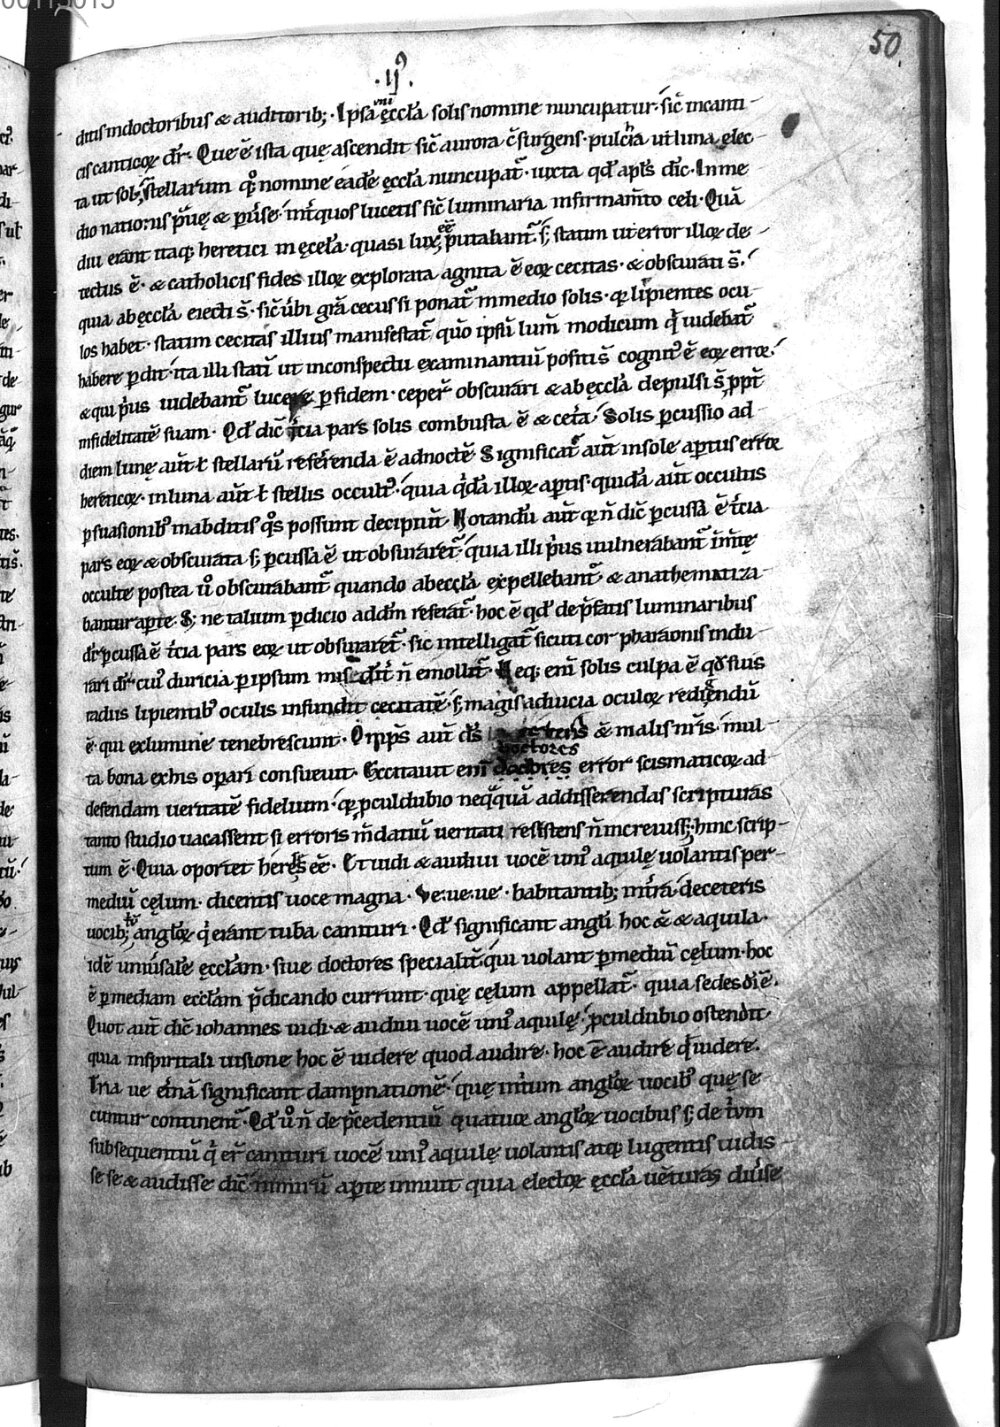 50
·IJ⁹·
ditis in doctoribus & auditorib;· Ipsa uni ęccła solis nomine nuncupatur· sic̄ in canti-
cis canticoꝝ dr̄· Que ē ista quę ascendit sic̄ aurora c̄surgens· pulchra ut luna, elec-
ta ut sol; stellarum qͦ; nomine eadē ęccła nuncupat᷑· iuxta qđ apłs dic̄· In me-
dio nationis prauę & puerse· int̄ quos lucetis sic̄ luminaria in firmam̄to celi· Quā
diu erant itaq; heretici in ęccła· quasi lux eē putabant᷑· s; statim ut error illoꝝ de-
tectus ē· & catholicis fides illoꝝ explorata agnita ē eoꝝ cecitas· & obscurati s̄·
quia ab ęccła eiecti s̄· sic̄ ubi grā cecus si ponat᷑ in medio solis· qͣ lipientes ocu-
los habet· statim cecitas illius manifestat᷑ quō ipsū lum̄ modicum qđ uidebat᷑
habere ꝑdit· ita illi statū ut in conspectu examinantiū positis cognit⁹ ē eoꝝ error·
& qui pͥus uidebant᷑ lucere ꝑ fidem· ceper̄ obscurari & ab ęccła depulsi s̄ ppt̄
infidelitatē suam· Qđ dic̄ t̄cia pars solis combusta ē & cet̄a· Solis ꝑcussio ad
diem lunę aut̄ ł stellarū referenda ē ad noctē Significat᷑ aut̄ in sole aptus error
hereticoꝝ· in luna aut̄ ł stellis occult⁹· quia qͥdā illoꝝ aptis· quidā aut̄ occultis
ꝑsuasionib⁹ in abditis qͦs possunt decipiunt̄· Notandū aut̄ qͣ n̄ dic̄ ꝑcussa ē t̄cia
pars eoꝝ & obscurata s; ꝑcussa ē ut obscuraret᷑· quia illi pͥus uulnerabant᷑ in m̄te
occulte postea u̾ obscurabant᷑ quando ab eccła expellebant᷑ & anathematiza-
bantur apte· S; ne talium ꝑdicio ad dm̄ referat᷑· hoc ē qđ de p̄fatis luminaribus
dr̄ ꝑcussa ē t̄cia pars eoꝝ ut obscuraret᷑· sic intelligat᷑ sicuti cor pharaonis indu-
rari dr̄· cui⁹ duricia ꝑ ipsum n̄ emollit᷑· Neq; eni᷑ solis culpa ē qđ suis
radiis lipientib⁹ oculis infundit cecitatē· s; magis aduicia oculoꝝ rediguendū
ē· qui ex lumine tenebrescunt· Omps̄ aut̄ ds̄ & malis nr̄is· mul-
ta bona ex his oꝑari consueuit· Excitauit eni᷑ doctores error scismaticoꝝ ad
defendam ueritatē fidelium· qͥ ꝓculdubio neqͣquā ad disserendas scripturas
tanto studio uacassent si erroris m̄datiū ueritati resistens n̄ increuiss;· hinc scrip-
tum ē· Quia oportet hereses eē· Et uidi & audiui uocē uni⁹ aquilę uolantis per
mediū cęlum· dicentis uoce magna· Ve· ue· ue· habitantib; in t̄ra· de ceteris
uocib; angłoꝝ qͥ erant tuba canituri· Qđ significant angli hoc ē & aquila·
idē uniu̾salē ęccłam· siue doctores specialit̄ qui uolant ꝑ mediū cęlum· hoc
ē ꝑ mediam ecclam p̄dicando currunt· quę cęlum appellat᷑· quia sedes di ē·
Quot aut̄ dic̄ iohannes uidi· & audiui uocē uni⁹ aquilę· ꝓculdubio ostendit·
quia in spiritali uisione hoc ē uidere quod audire· hoc ē audire qđ uidere·
Tria ue et̄nā significant dampnationē· quę in t̄um angłoꝝ uocib⁹ quę se-
cuntur continent᷑· Qđ u̾ n̄ de p̄cedentiū quatuor angłoꝝ uocibus s; de t̄um
subsequentiū qͥ er̄ canituri uocē uni⁹ aquilę uolantis atq; lugentis uidis-
se se & audisse dic̄ apte innuit quia electoꝝ ęccła uēturas diuise